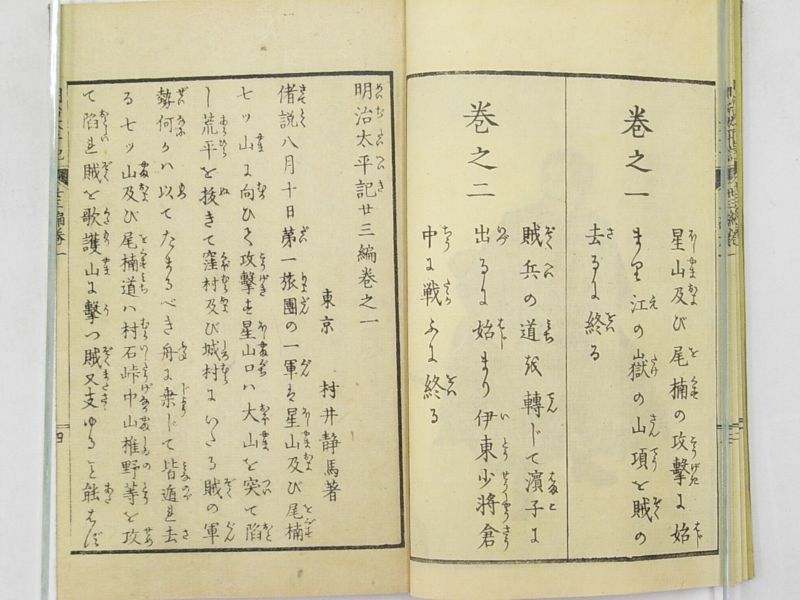 巻之一
星山及び尾楠の攻撃に始
まり江の嶽の山項を賊の
去るに終る
巻之二
賊兵の道を轉じて濱子に
出るに始まり伊東少将倉
中に戦ふに終る
明治太平記廿三編巻之一
東京 村井静馬著
偖説八月十日第一旅團の一軍は星山及び尾楠
七ッ山に向ひて攻撃す星山口ハ大山を突て陷
し荒平を抜きて窪村及び城村にいたる賊の軍
勢何かハ以てたまるべき舟に乗じて皆遁れ去
る七ッ山及び尾楠道ハ村石峠中山椎野等を攻
て陷れ賊を歌護山に撃つ賊又支ゆること能はず
四